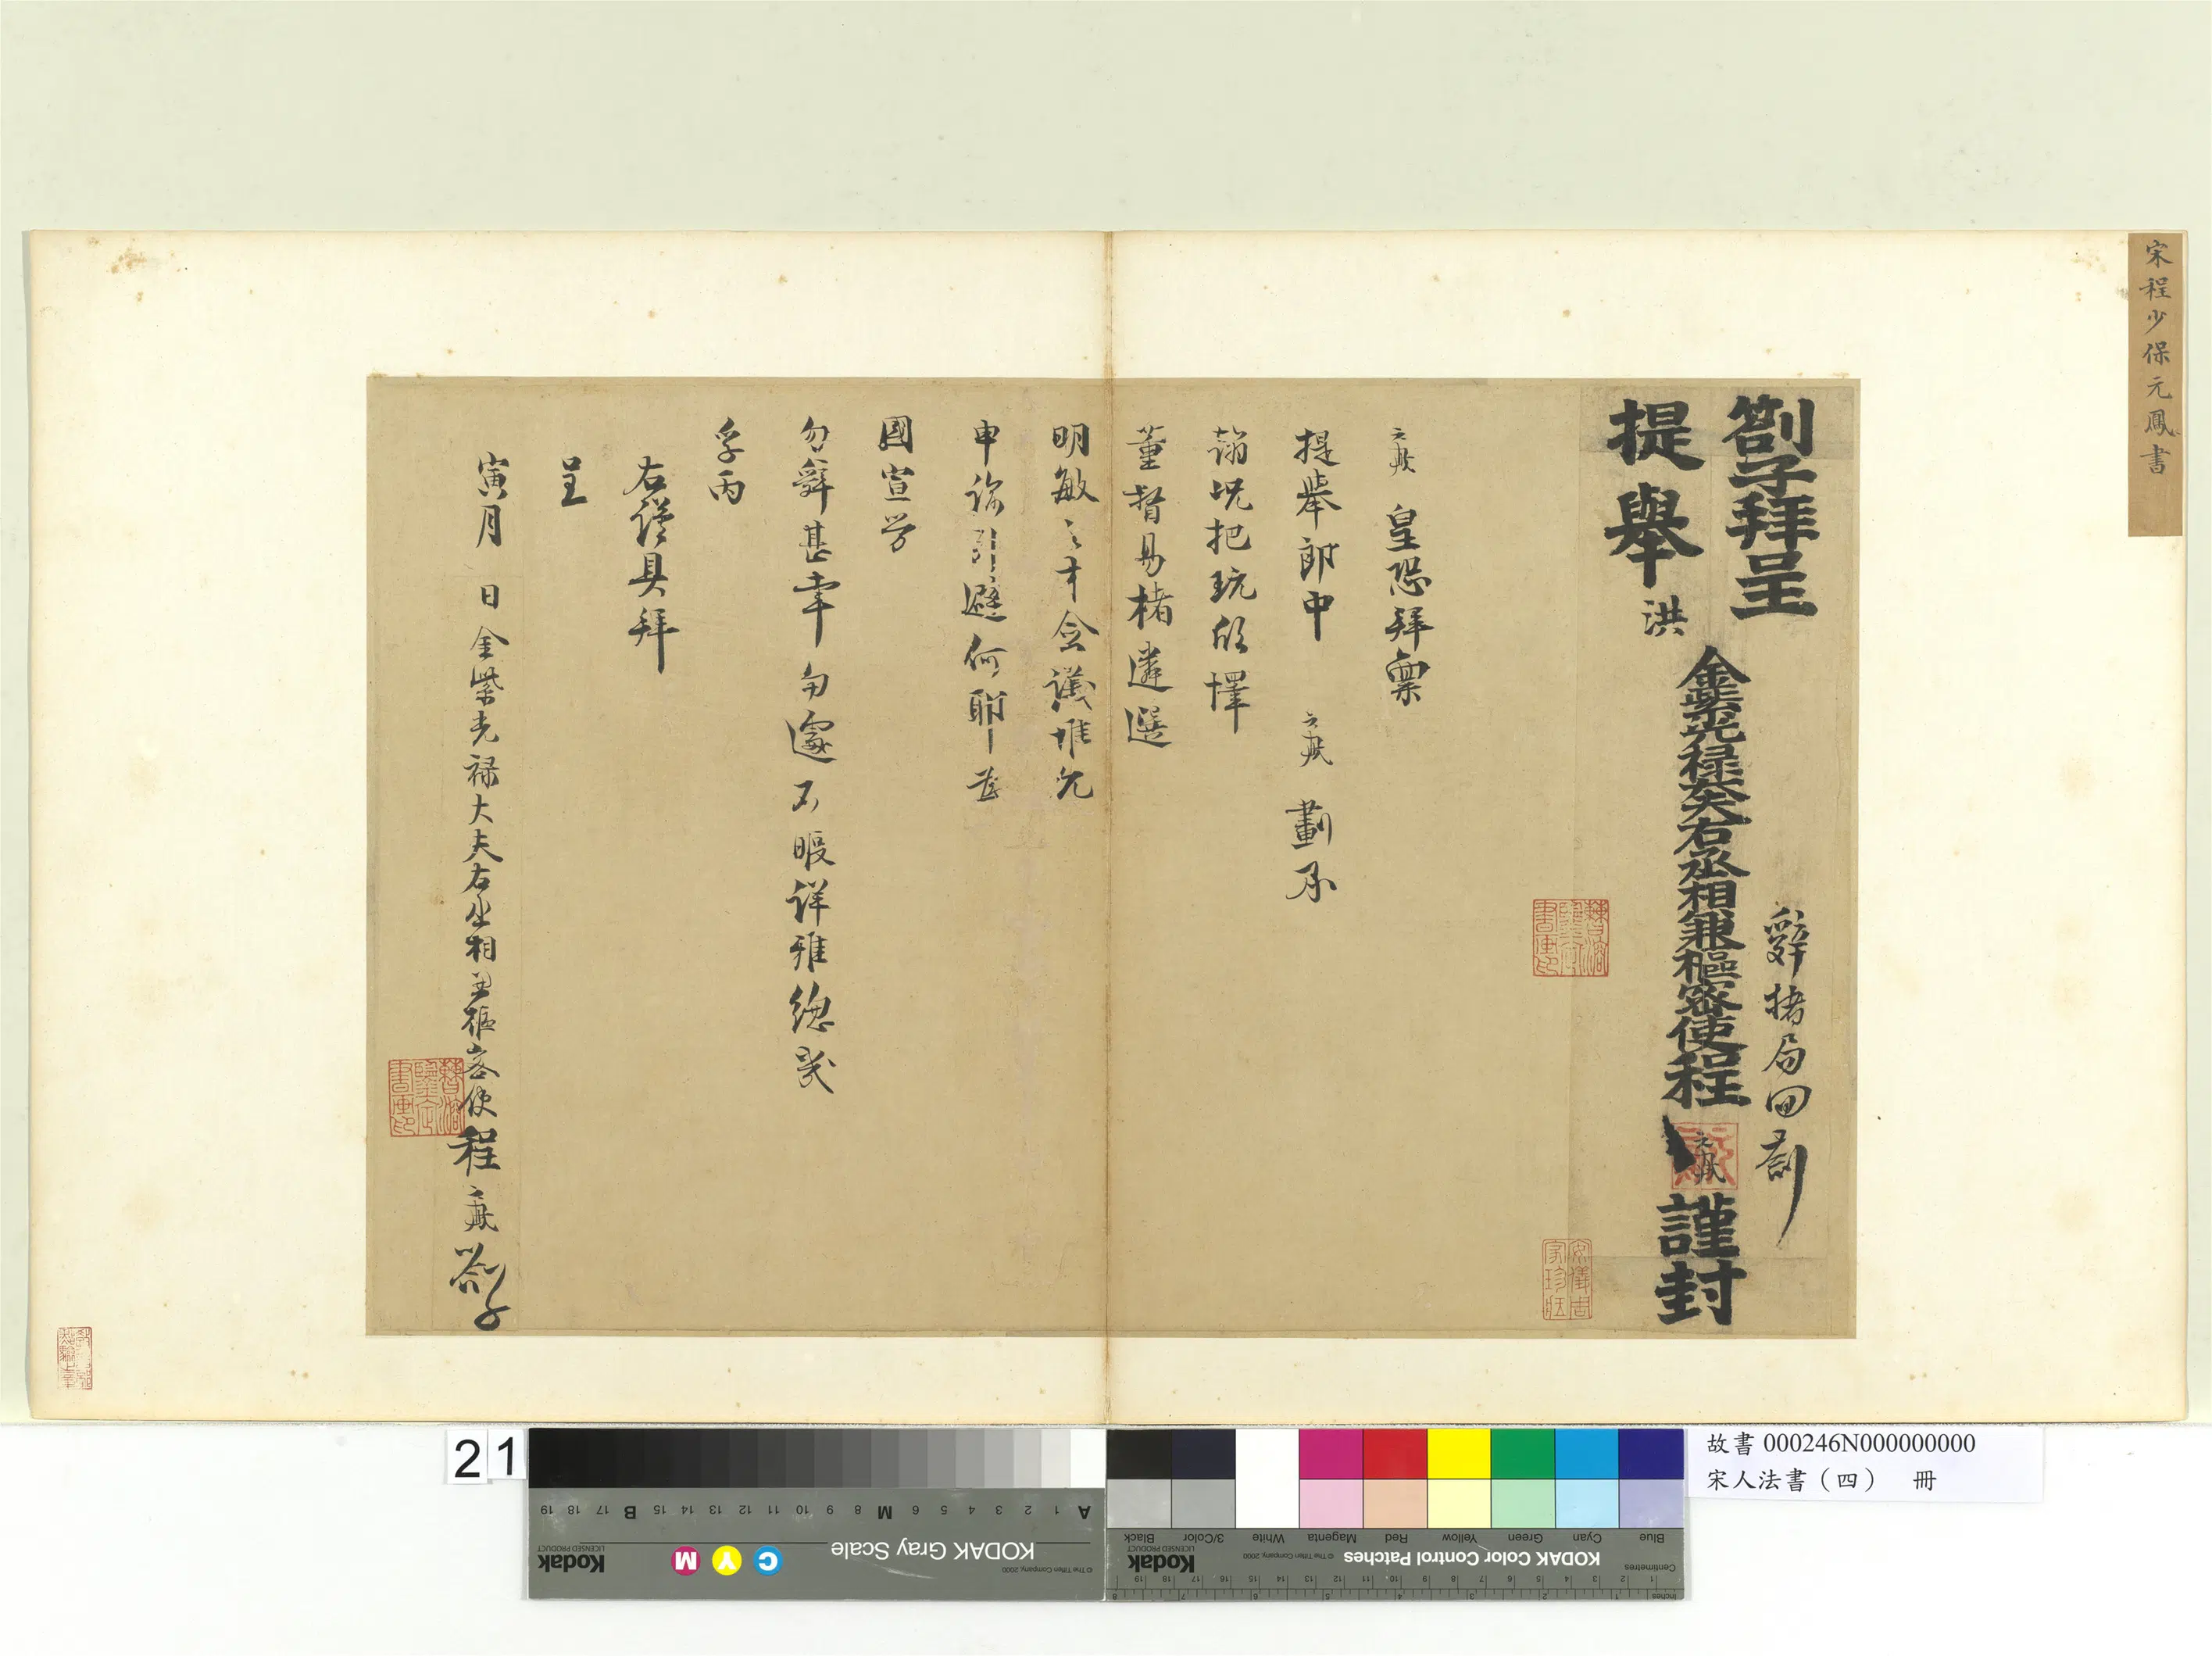 宋程少保元鳳書
劄子拜呈
提舉 洪
金紫光祿大夫右丞相兼樞密使程 元鳳 謹封
辭楮局回劄
元鳳 皇恐拜稟
提舉郎中 元鳳 劃承
翰貺把玩欣懌
董督易楮遴選
明敏之才僉議惟允
申諭引避何耶茲
國宣勞
勿辭甚幸匆遽不暇詳雅總幾
孚丙
右謹具拜
呈
寅月 日金紫光祿大夫右丞相兼樞密使程元鳳劄子
21
故書 000246N000000000
宋人法書（四） 冊
KODAK Gray Scale
Kodak
LICENSED PRODUCT
© The Tiffen Company, 2000
C Y M
A 1 2 3 4 5 6 M 8 9 10 11 12 13 14 15 B 17 18 19
KODAK Color Control Patches
Kodak
LICENSED PRODUCT
© The Tiffen Company, 2000
Blue Cyan Green Yellow Red Magenta White 3/Color Black
Centimetres
Inches